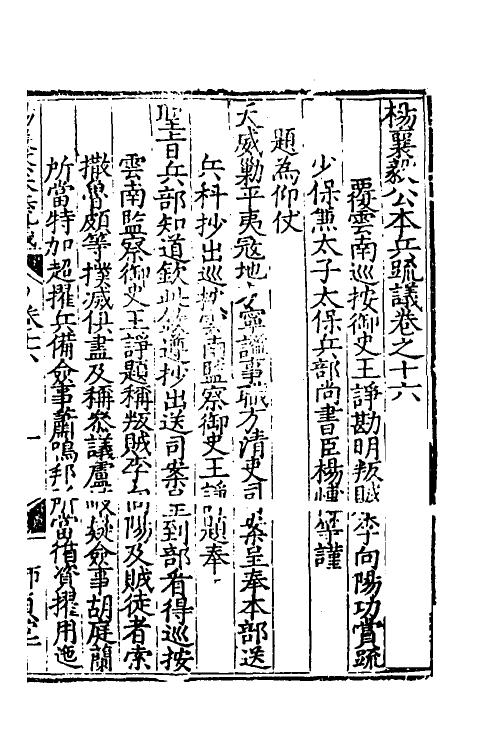 楊襄毅公本兵疏議卷之十六
覆雲南巡按御史王諍勘明叛賊李向陽功賞疏
少保兼太子太保兵部尚書臣楊博等謹
題為仰仗
天威勦平夷寇地方寧謐事職方清吏司案呈奉本部送
兵科抄出巡按雲南監察御史王諍題奉
聖旨兵部知道欽此欽遵抄出送司案呈到部看得巡按
雲南監察御史王諍題稱叛賊李向陽及賊徒者索
撒魯頗等撲滅俱盡及稱參議盧岐嶷僉事胡庭蘭
所當特加超擢兵備僉事蕭鳴邦所當循資擢用迤
卷十六
一